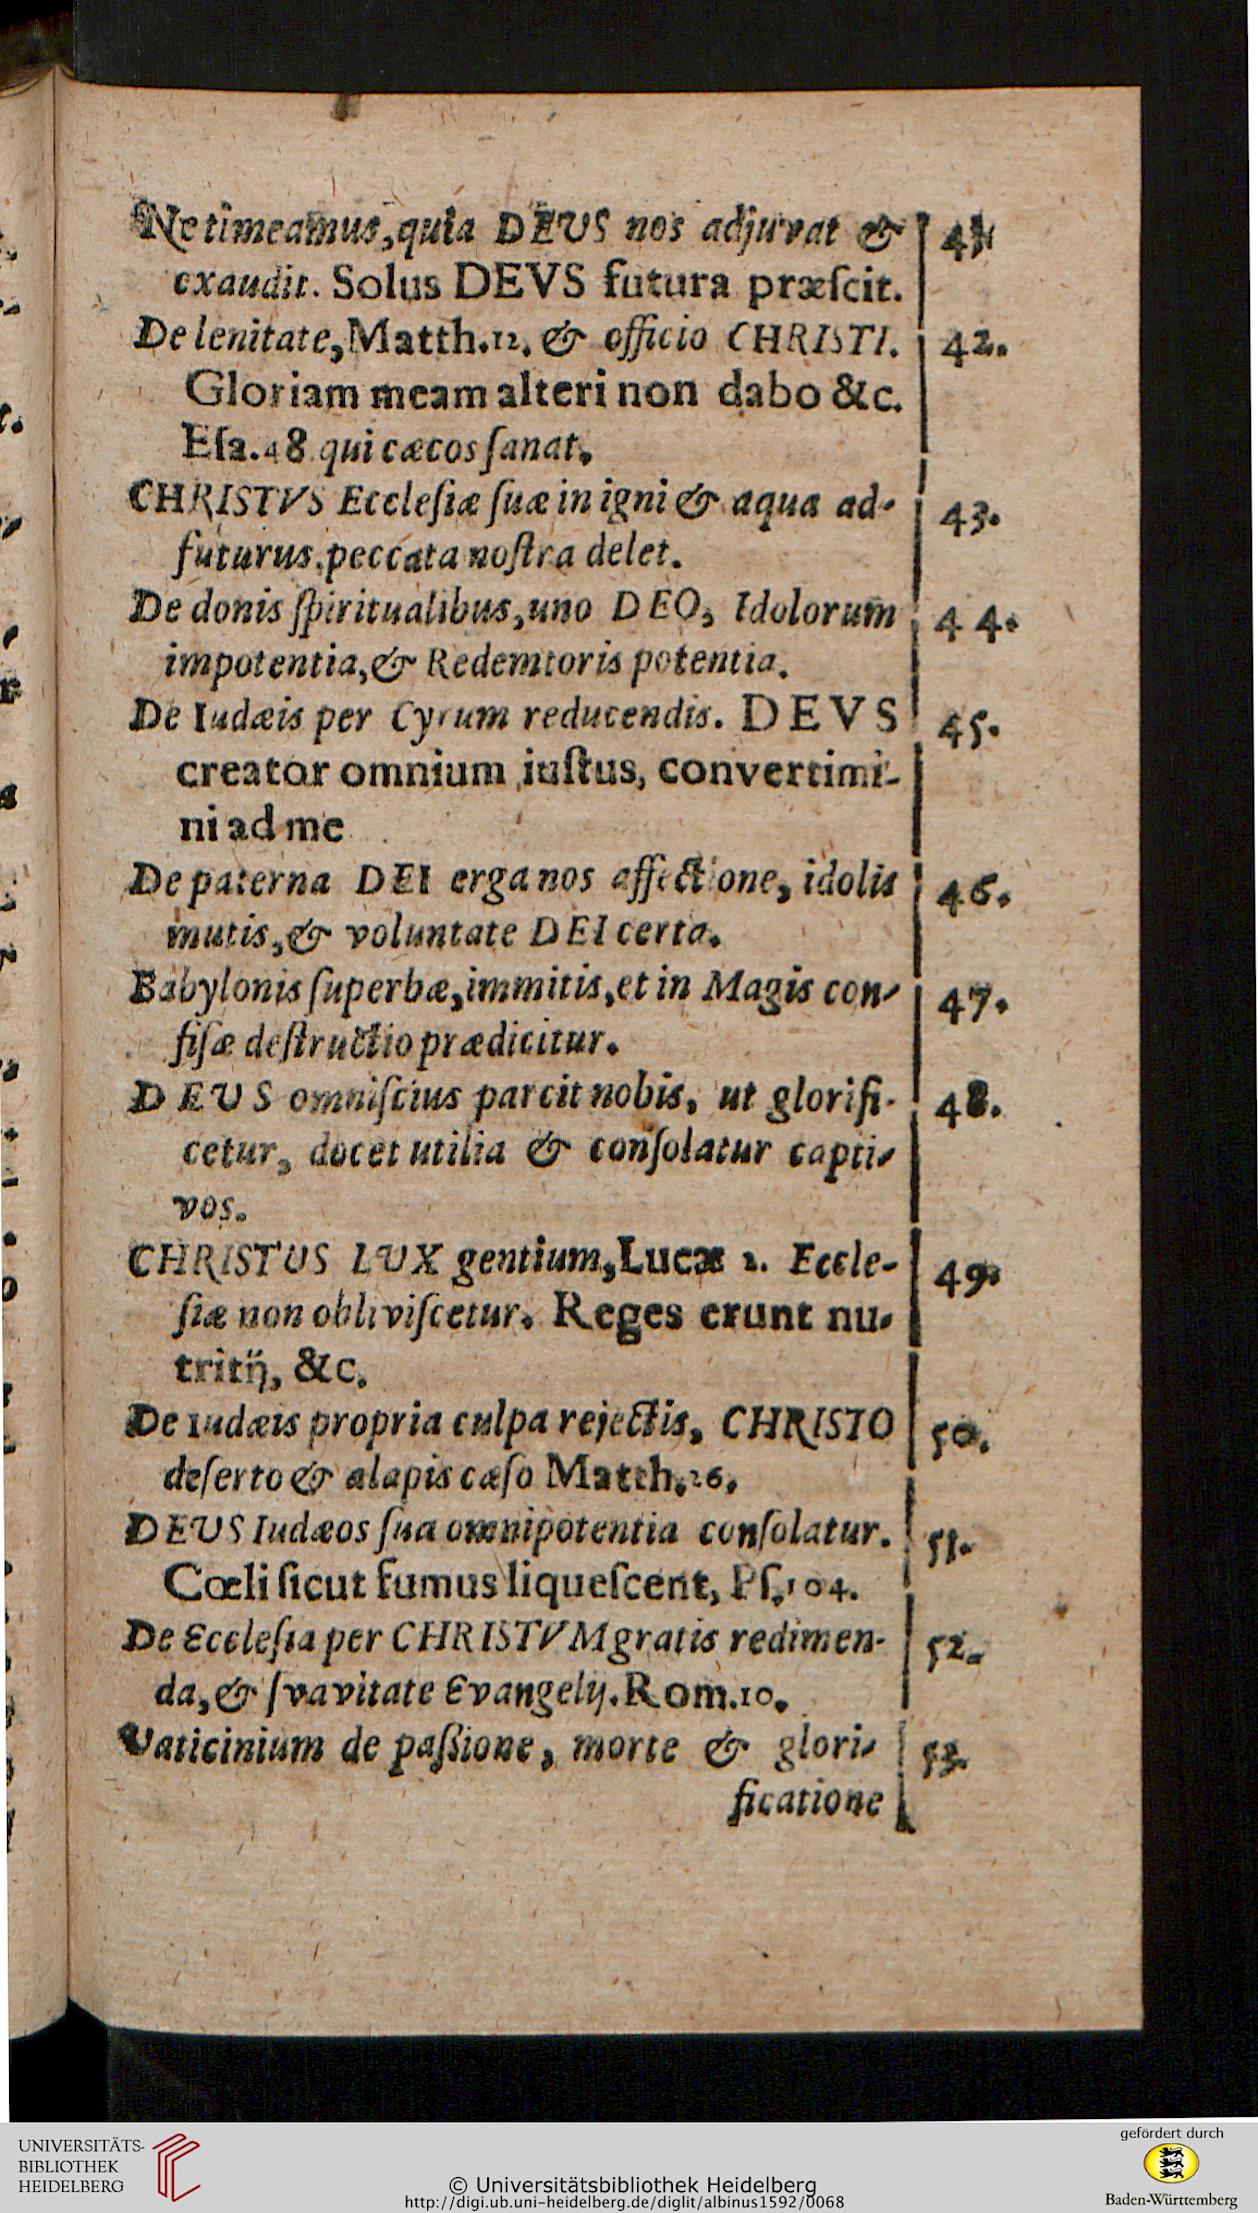 Ne timeamus, quia DEUS nos adjuvat & 41
exaudit. Solus DEVS futura præſcit.
De lenitate, Matth. 12. & officio CHRISTI. 42.
Gloriam meam alteri non dabo &c.
Eſa. 48 qui cæcos ſanat.
CHRISTVS Eccleſiæ ſuæ in igni & aqua ad- 43.
futurus, peccata noſtra delet.
De donis ſpiritualibus, uno DEO, Idolorum 44.
impotentia, & Redemtoris potentia.
De Iudæis per Cyrum reducendis. DEVS 45.
creator omnium iuſtus, convertimi-
ni ad me
De paterna DEI erga nos affectione, idolis 46.
mutis, & voluntate DEI certa.
Babylonis ſuperbæ, immitis, et in Magis con- 47.
fiſæ deſtructio prædicitur.
DEUS omniſcius parcit nobis, ut glorifi- 48.
cetur, docet utilia & conſolatur capti-
vos.
CHRISTUS LUX gentium, Lucæ 2. Eccle- 49.
ſiæ non obliviſcetur. Reges erunt nu-
tritij, &c.
De Iudæis propria culpa rejectis, CHRISTO 50.
deſerto & alapis cæſo Matth. 26.
DEUS Iudæos ſua omnipotentia conſolatur. 51.
Cœli ſicut fumus liqueſcent, Pſ. 104.
De Eccleſia per CHRISTVM gratis redimen- 52.
da, & ſvavitate Evangelij. Rom. 10.
Vaticinium de paßione, morte & glori- 53.
ficatione
UNIVERSITÄTS-
BIBLIOTHEK
HEIDELBERG
© Universitätsbibliothek Heidelberg
http://digi.ub.uni-heidelberg.de/diglit/albinus1592/0068
gefördert durch
Baden-Württemberg